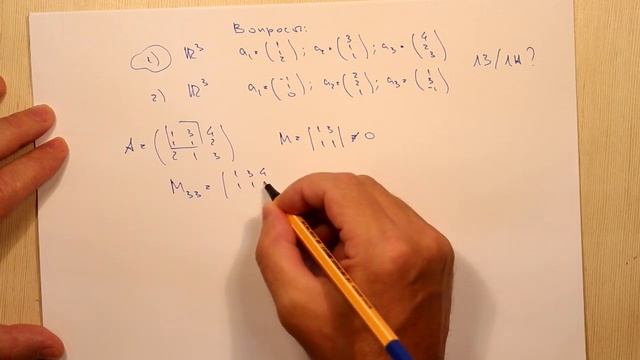 Вопросы:
1) ℝ³ a₁=(1 1 2); a₂=(3 1 1); a₃=(4 2 3) 13/14?
2) ℝ³ a₁=(-1 1 0); a₂=(2 2 1); a₃=(1 3 -1)
A=(1 3 4
1 1 2
2 1 3) M=|1 3
1 1|≠0
M₃₃=|1 3 4
1 1